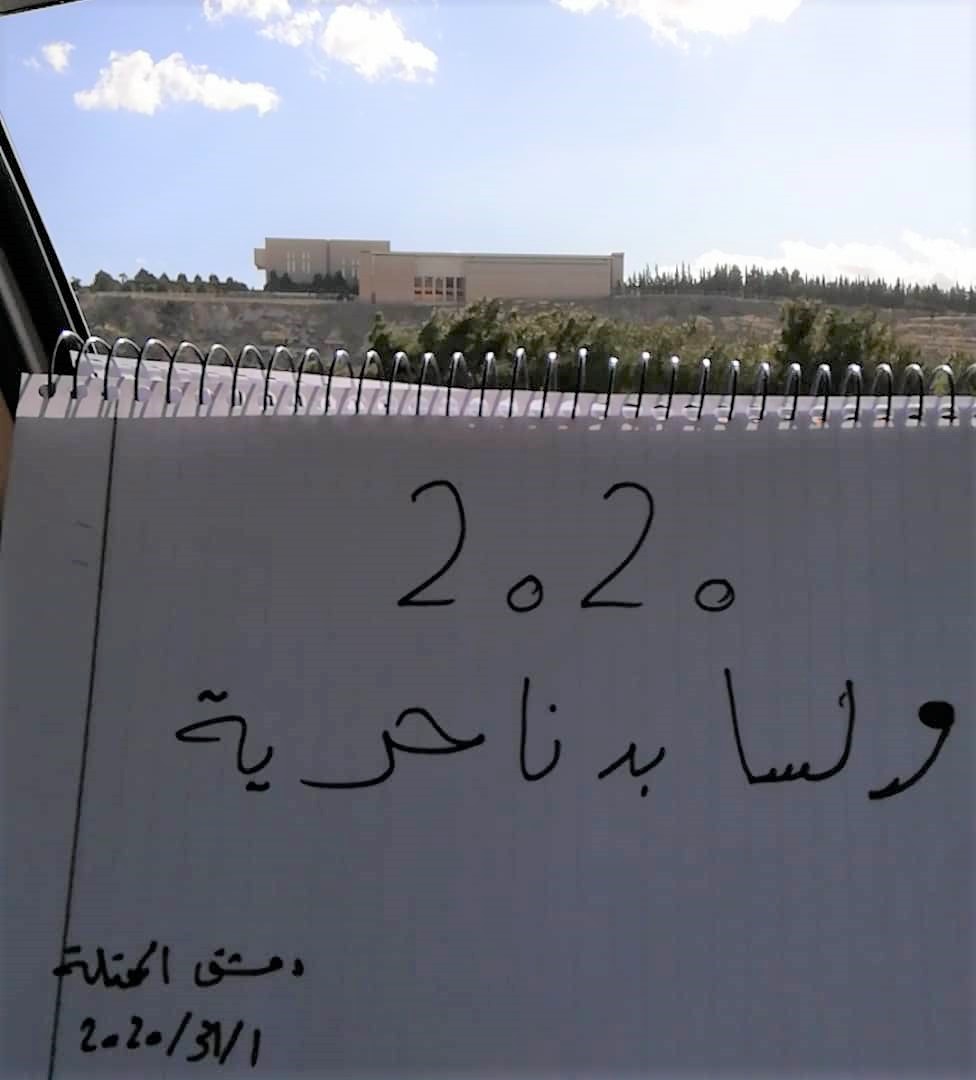 2020
ولسا بدنا حرية
دمشق المحتلة
2020/31/1